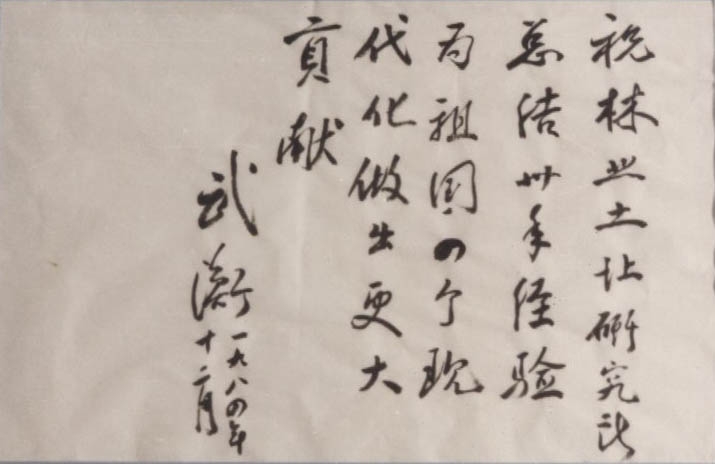 祝林业土壤研究所
总结卅年经验
为祖国四个现
代化做出更大
贡献
武衡
一九八四年
十二月